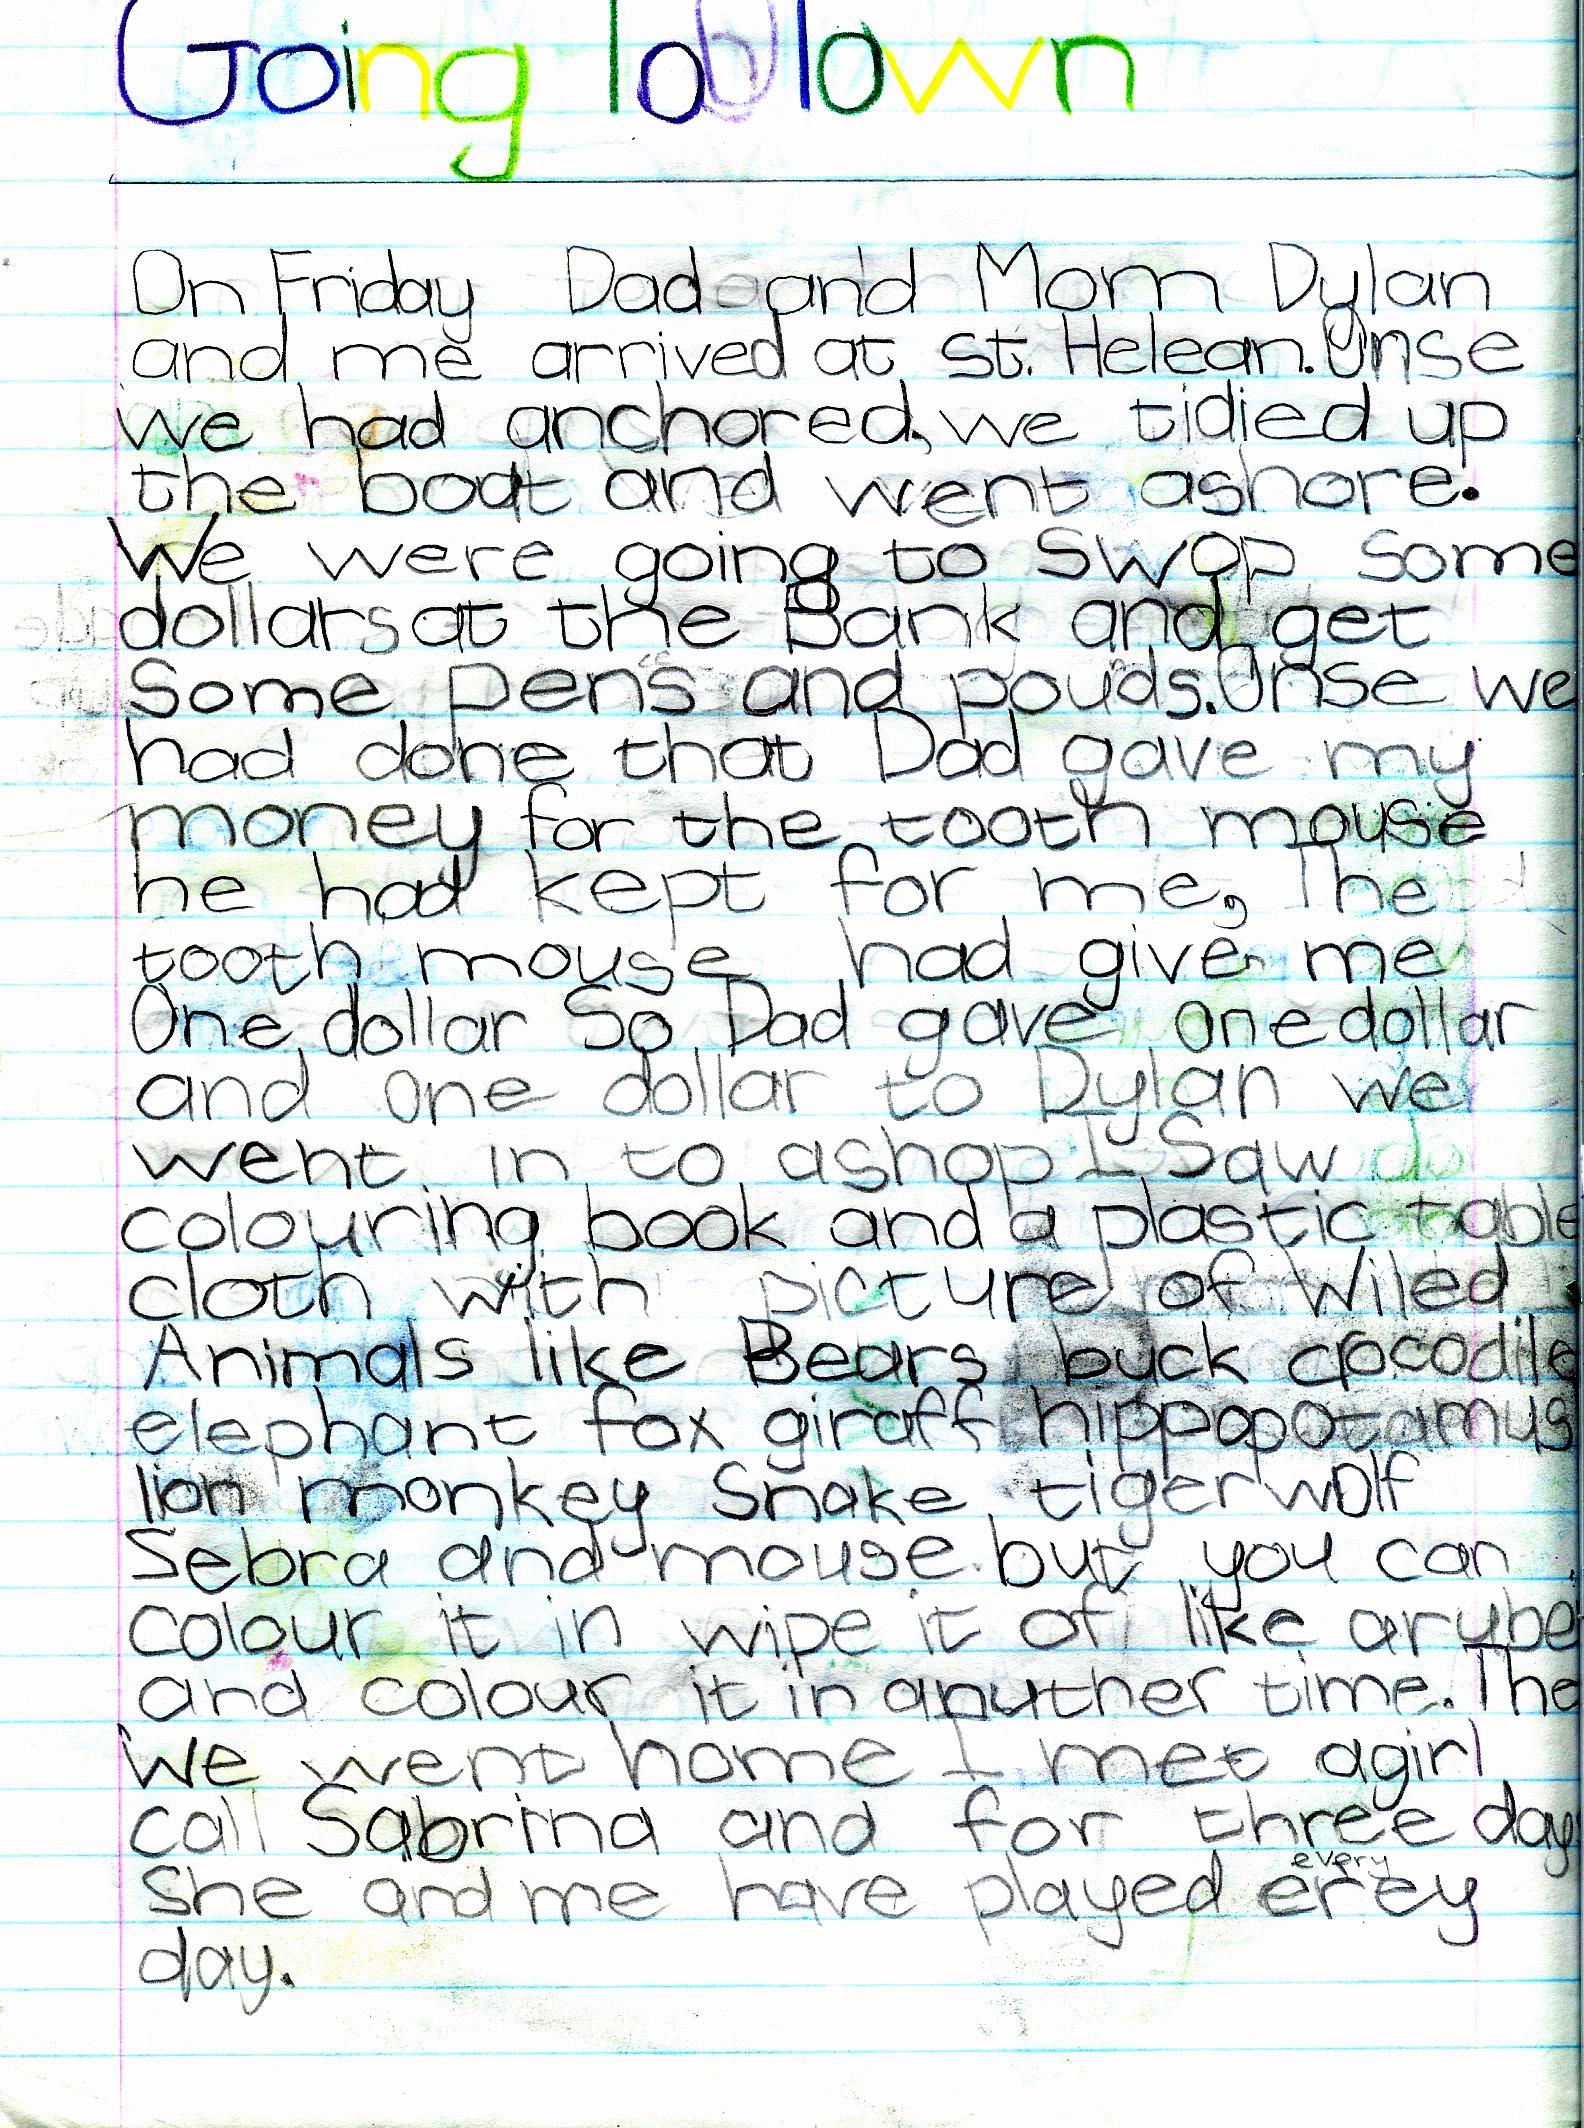 Going To Town
On Friday Dad and Mom Dylan
and me arrived at st. Helean. Onse
we had anchored, we tidied up
the boat and went ashore.
We were going to swop some
dollars at the Bank and get
Some pens and pouds. Onse we
had done that Dad gave my
money for the tooth mouse
he had kept for me, The
tooth mouse had give me
One dollar So Dad gave one dollar
and one dollar to Dylan we
went in to a shop I Saw a
colouring book and a plastic table
cloth with picture of Wiled
Animals like Bears buck crocodile
elephant fox giraff hippopotamus
lion monkey Snake tiger wolf
Sebra and mouse but you can
colour it in wipe it of like a rube
and colour it in anuther time. The
We went home I met a girl
call Sabrina and for three day
every
She and me have played erey
day.